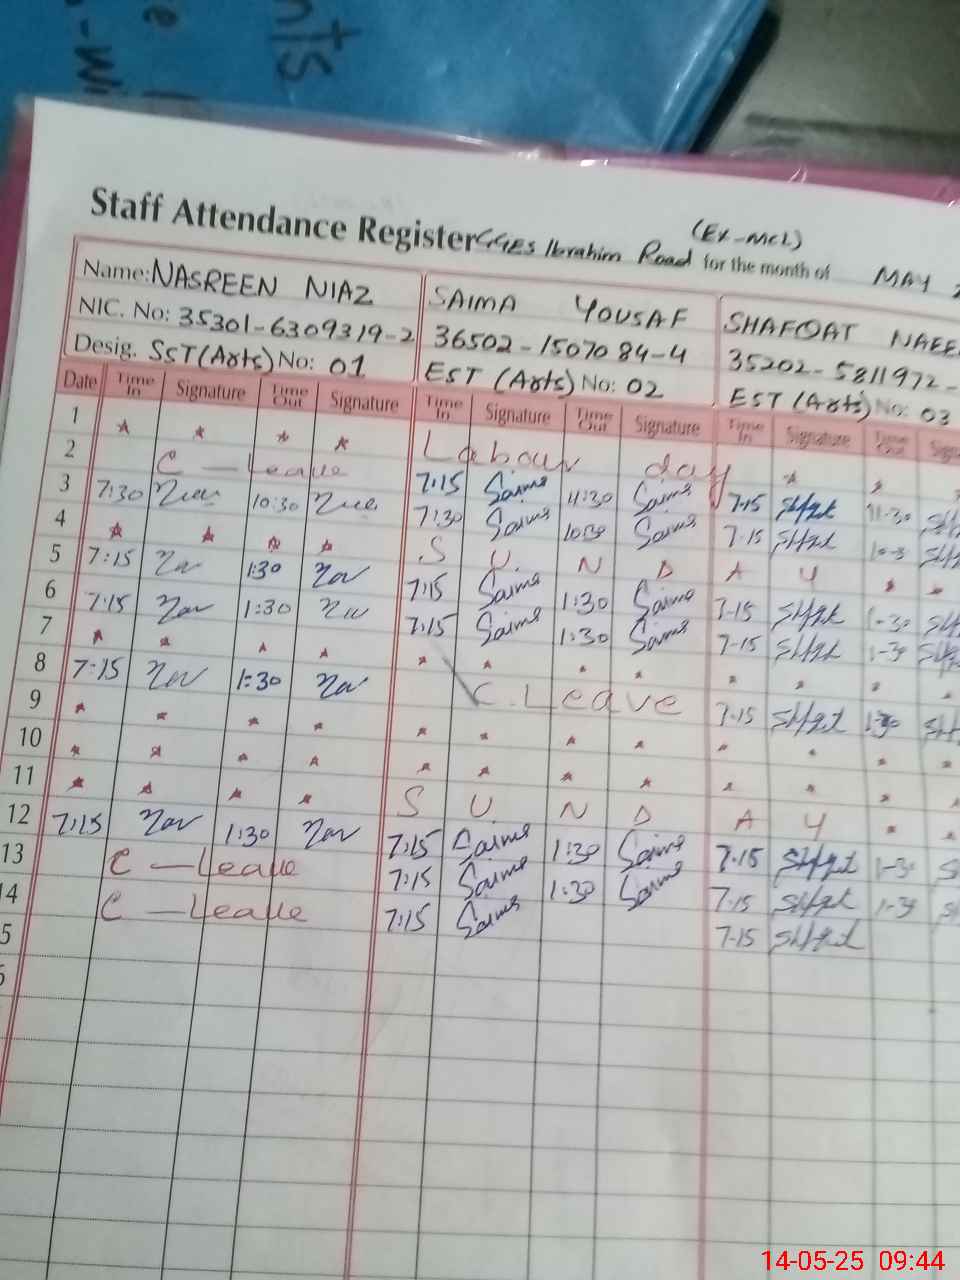 nts
Staff Attendance Register GGES Ibrahim Road (Ex-MCL) for the month of MAY
Name: NASREEN NIAZ SAIMA YOUSAF SHAFQAT NAEE
NIC. No: 35301-6309319-2 36502-1507084-4 35202-5811972-
Desig. SST (Arts) No: 01 EST (Arts) No: 02 EST (Arts) No: 03
Date Time In Signature Time Out Signature Time In Signature Time Out Signature Time In Signature Time Out Sign
1 * * * * Labour day * *
2 C-Leave 7:15 Saima 11:30 Saima 7-15 11-30
3 7:30 10:30 7:30 Saima 10:30 Saima 7-15 10-3
4 * * * * S U N D A Y * *
5 7:15 1:30 7:15 Saima 1:30 Saima 7-15 1-30
6 7:15 1:30 7:15 Saima 1:30 Saima 7-15 1-30
7 * * * * * * * * * * *
8 7:15 1:30 C. Leave 7-15 1-30
9 * * * * * * * * * * * *
10 * * * * * * * * * * * *
11 * * * * S U N D A Y * *
12 7:15 1:30 7:15 Saima 1:30 Saima 7-15 1-30
13 C-Leave 7:15 Saima 1:30 Saima 7-15 1-30
14 C-Leave 7:15 Saima 7-15
5
14-05-25 09:44